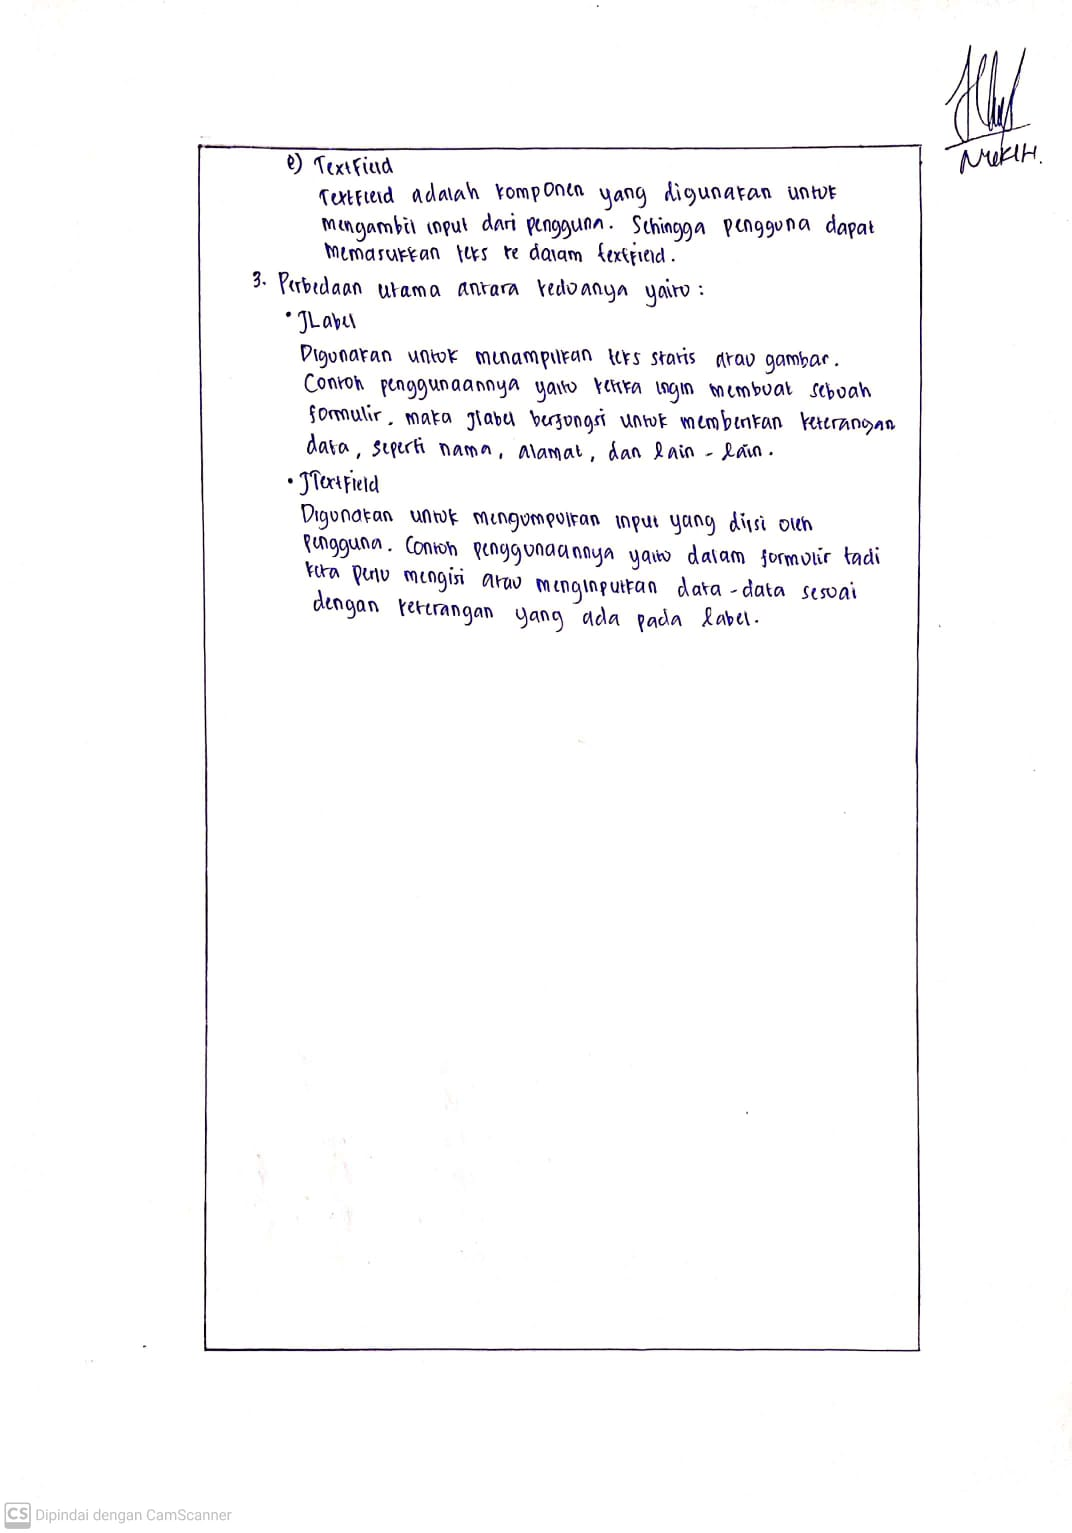 e) TextField
TextField adalah komponen yang digunakan untuk
mengambil input dari pengguna. Sehingga pengguna dapat
memasukkan teks ke dalam textfield.
3. Perbedaan utama antara keduanya yaitu :
• JLabel
Digunakan untuk menampilkan teks statis atau gambar.
Contoh penggunaannya yaitu ketika ingin membuat sebuah
formulir, maka Jlabel berfungsi untuk memberikan keterangan
data, seperti nama, alamat, dan lain - lain.
• JTextField
Digunakan untuk mengumpulkan input yang diisi oleh
pengguna. Contoh penggunaannya yaitu dalam formulir tadi
kita perlu mengisi atau menginputkan data - data sesuai
dengan keterangan yang ada pada label.
CS Dipindai dengan CamScanner